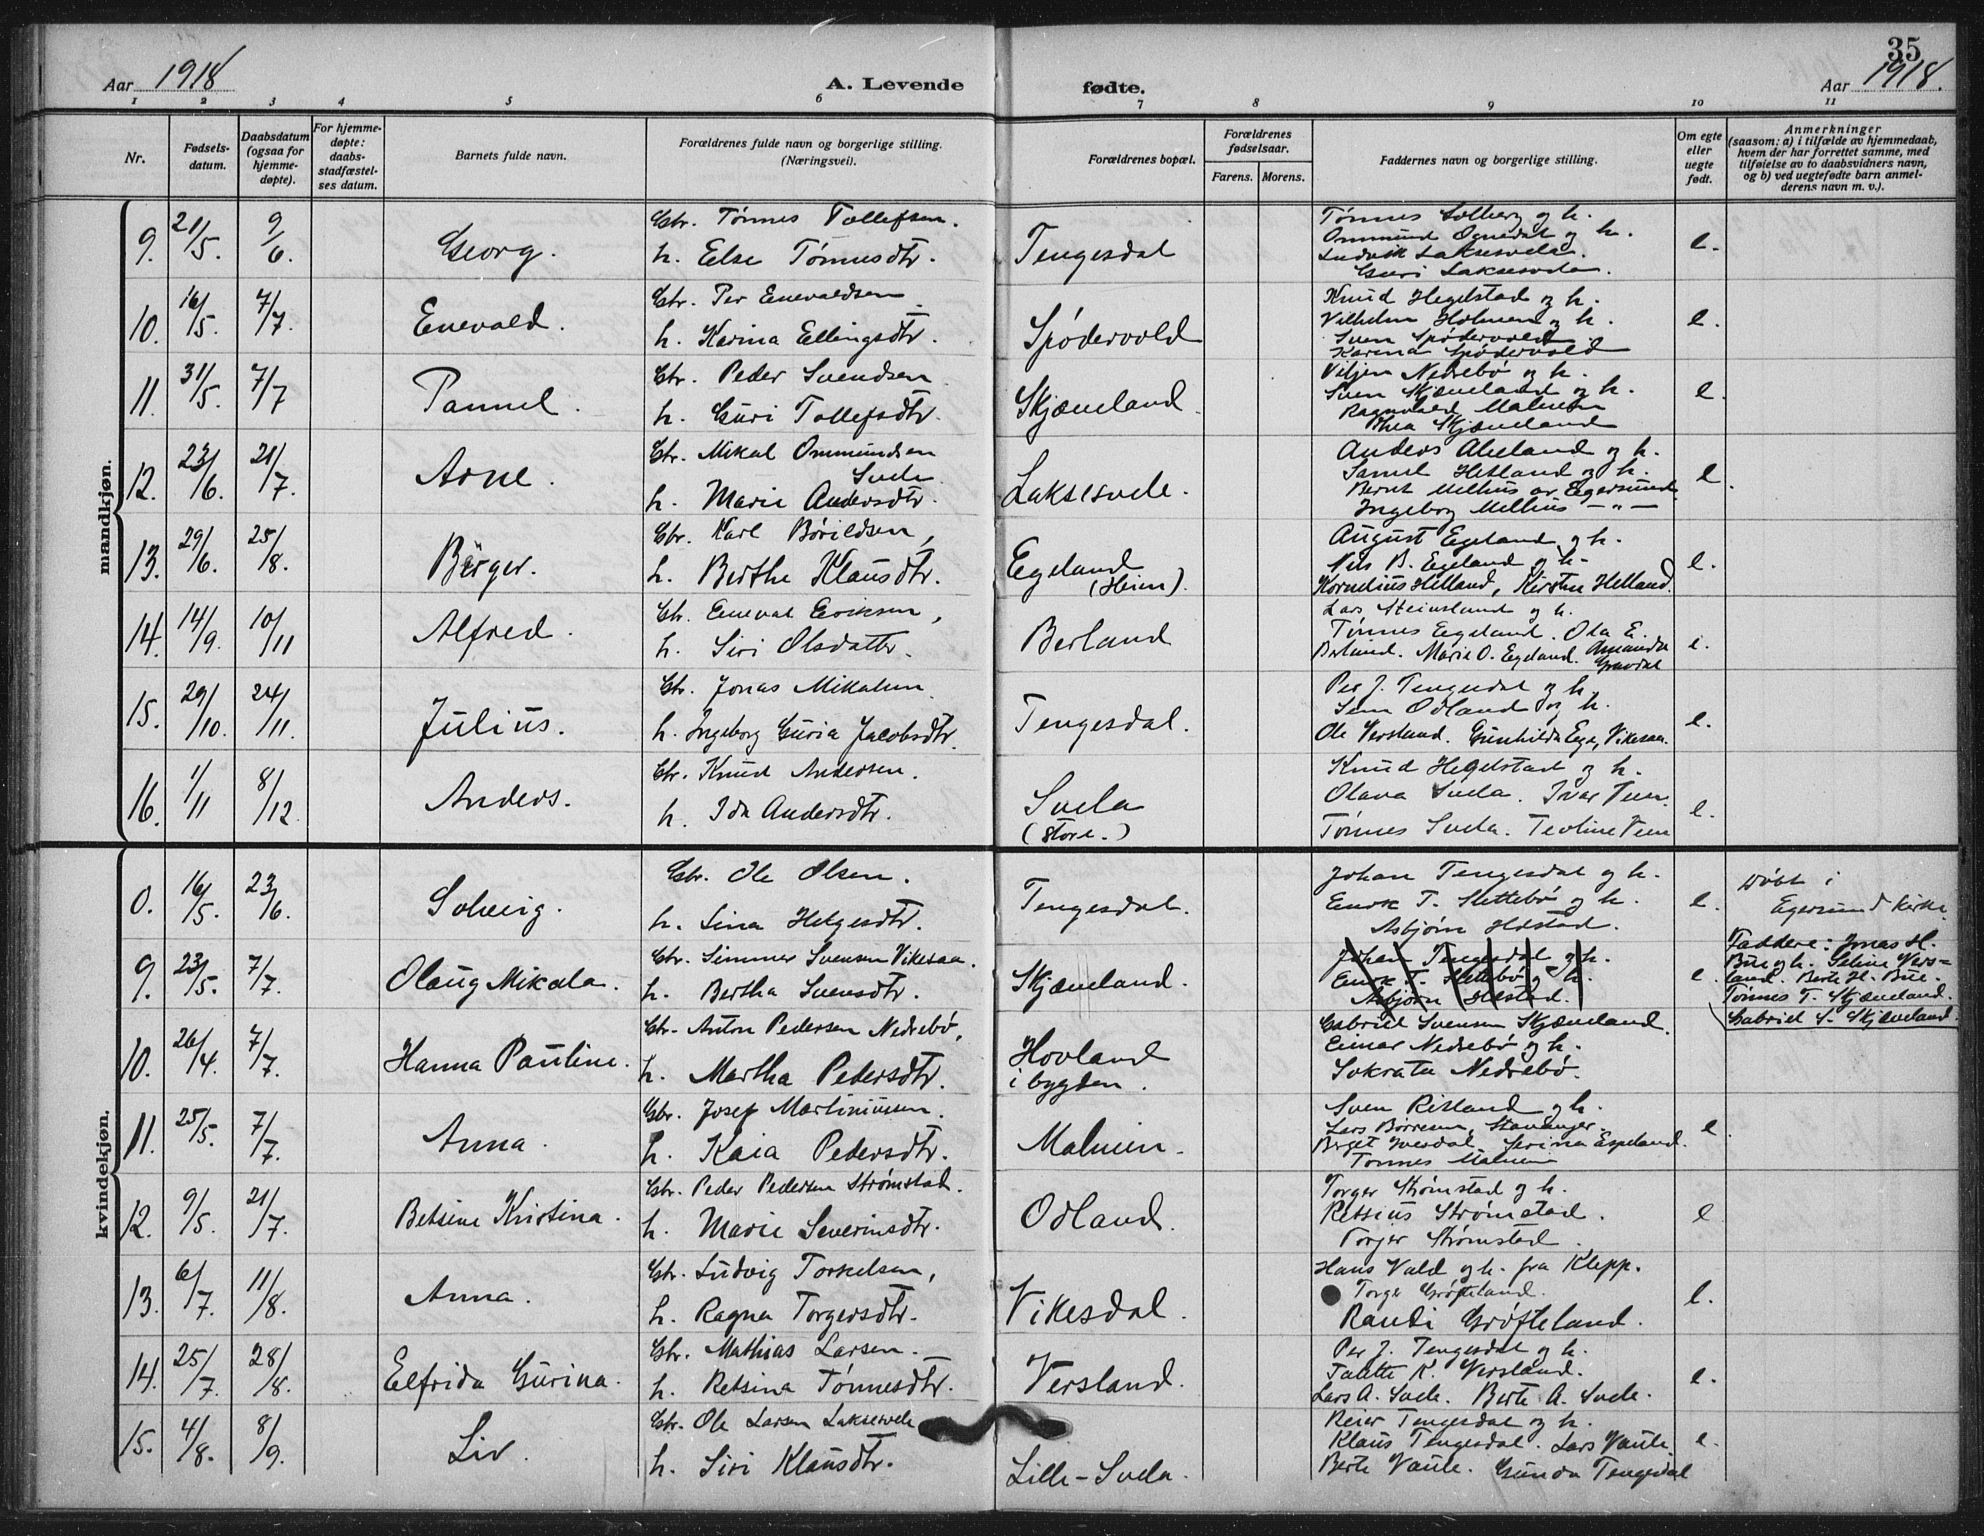 35
Aar 1918 A. Levende fødte. Aar 1918.
1 2 3 4 5 6 7 8 9 10 11
Nr.
Fødsels-
datum.
Daabsdatum
(ogsaa for
hjemme-
døpte).
For hjemme-
døpte:
daabs-
stadfæstel-
ses datum.
Barnets fulde navn.
Forældrenes fulde navn og borgerlige stilling.
(Næringsvei).
Forældrenes bopæl.
Forældrenes
fødselsaar.
Farens. Morens.
Faddernes navn og borgerlige stilling.
Om egte
eller
uegte
født.
Anmerkninger
(saasom: a) i tilfælde av hjemmedaab,
hvem der har forrettet samme, med
tilføielse av to daabsvidners navn,
og b) ved uegtefødte barn anmel-
derens navn m. v.).
mandkjøn.
9. 21/5. 9/6. Georg.
Gbr. Tønnes Tollefsen.
h. Else Tønnesdtr.
Tengesdal
Tønnes Solberg og h.
Ommund Ognedal og h.
Ludvik Laksesvela.
Guri Laksesvela.
e.
10. 16/5. 7/7. Enevald.
Gbr. Per Enevaldsen
h. Karina Ellingsdtr.
Spødervold
Knud Hegelstad og h.
Vilhelm Holmen og h.
Sven Spødervold
Karina Spødervold
e.
11. 31/5. 7/7 Paul.
Gbr. Peder Svendsen
h. Guri Tollefsdtr.
Skjæveland
Viljen Nedrebø og h.
Sven Skjæveland og h.
Ragnvald Malmein
Thea Skjæveland
e.
12. 23/6. 21/7. Arne.
Gbr. Mikal Ommundsen
Svela
h. Marie Andersdtr.
Laksesvela.
Anders Aluland og h.
Samuel Hetland og h.
Bernt Mellius av Egersund
Ingeborg Mellius - " -
e.
13. 29/6. 25/8. Børger.
Gbr. Karl Børildsen,
h. Berthe Klausdtr.
Egeland
(Heim).
August Egeland og h.
Nils B. Egeland og h.
Kornelius Helland, Kirsten Helland.
e.
14. 14/9. 10/11 Alfred.
Gbr. Enevat Eriksen,
h. Siri Olsdatter.
Berland
Lars Steinsland og h.
Tønnes Egeland. Ola E.
Berland. Marie O. Egeland. Amanda
Gravdal
e.
15. 29/10. 24/11. Julius.
Gbr. Jonas Mikalsen
h. Ingeborg Guria Jacobsdtr.
Tengesdal.
Per J. Tengesdal og h.
Sem Odland og h.
Ole Versland. Gunhilda Ege, Vikesaa.
e.
16. 1/11 8/12 Anders.
Gbr. Knud Andersen.
h. Ida Andersdtr.
Svela
(Store.)
Knud Hegelstad og h.
Olava Svela. Ivar Tuen
Tønnes Svela. Teoline Tuen
e.
kvindekjøn.
0. 16/5. 23/6. Solveig.
Gbr. Ole Olsen.
h. Lina Helgesdtr.
Tengesdal.
Johan Tengesdal og h.
Enok T. Slettebø og h.
Asbjørn Helstad.
e.
Døbt i
Egersund kirke
9. 23/5. 7/7. Olaug Mikala.
Gbr. Simmer Svensen Vikesaa.
h. Bertha Svensdtr.
Skjæveland.
Johan Tengesdal og h.
Enok T. Slettebø og h.
Asbjørn Helstad.
e.
Faddere: Jonas H.
Bue og h. Seline Vers-
land. Berte H. Bue.
Tønnes T. Skjæveland.
Gabriel S. Skjæveland.
10. 26/4. 7/7. Hanna Pauline.
Gbr. Anton Pedersen Nedrebø,
h. Martha Pedersdtr.
Hovland
i bygden.
Gabriel Svensen Skjæveland.
Einar Nedrebø og h.
Sokrata Nedrebø.
11. 25/5. 7/7. Anna.
Gbr. Josef Martiniussen.
h. Kaia Pedersdtr.
Malmein.
Sven Risland og h.
Lars Børresen, Stavanger.
Berget Ivesdal. Serina Espeland.
Tønnes Malmein
e.
12. 9/5. 21/7. Betsine Kristina.
Gbr. Peder Pedersen Strømstad.
h. Marie Severinsdtr.
Odland.
Torger Strømstad og h.
Retsius Strømstad.
Torjer Strømstad.
e
13. 6/7. 11/8. Anna.
Gbr. Ludvig Torkelsen,
h. Ragna Torgersdtr.
Vikesdal.
Hans Vald og h. fra Klepp.
Torger Grøfteland.
Randi Grøfteland.
e.
14. 25/7. 28/8. Elfrida Gurina.
Gbr. Mathias Larsen.
h. Retsina Tønnesdtr.
Versland.
Per J. Tengesdal og h.
Talette K. Versland.
Lars A. Svele. Berte A. Svele.
e.
15. 4/8. 8/9. Liv.
Gbr. Ole Larsen Laksesvele
h. Siri Klausdtr.
Lille-Svela.
Reier Tengesdal og h.
Klaus Tengesdal. Lars Vaule.
Berte Vaule. Gunda Tengesdal
e.